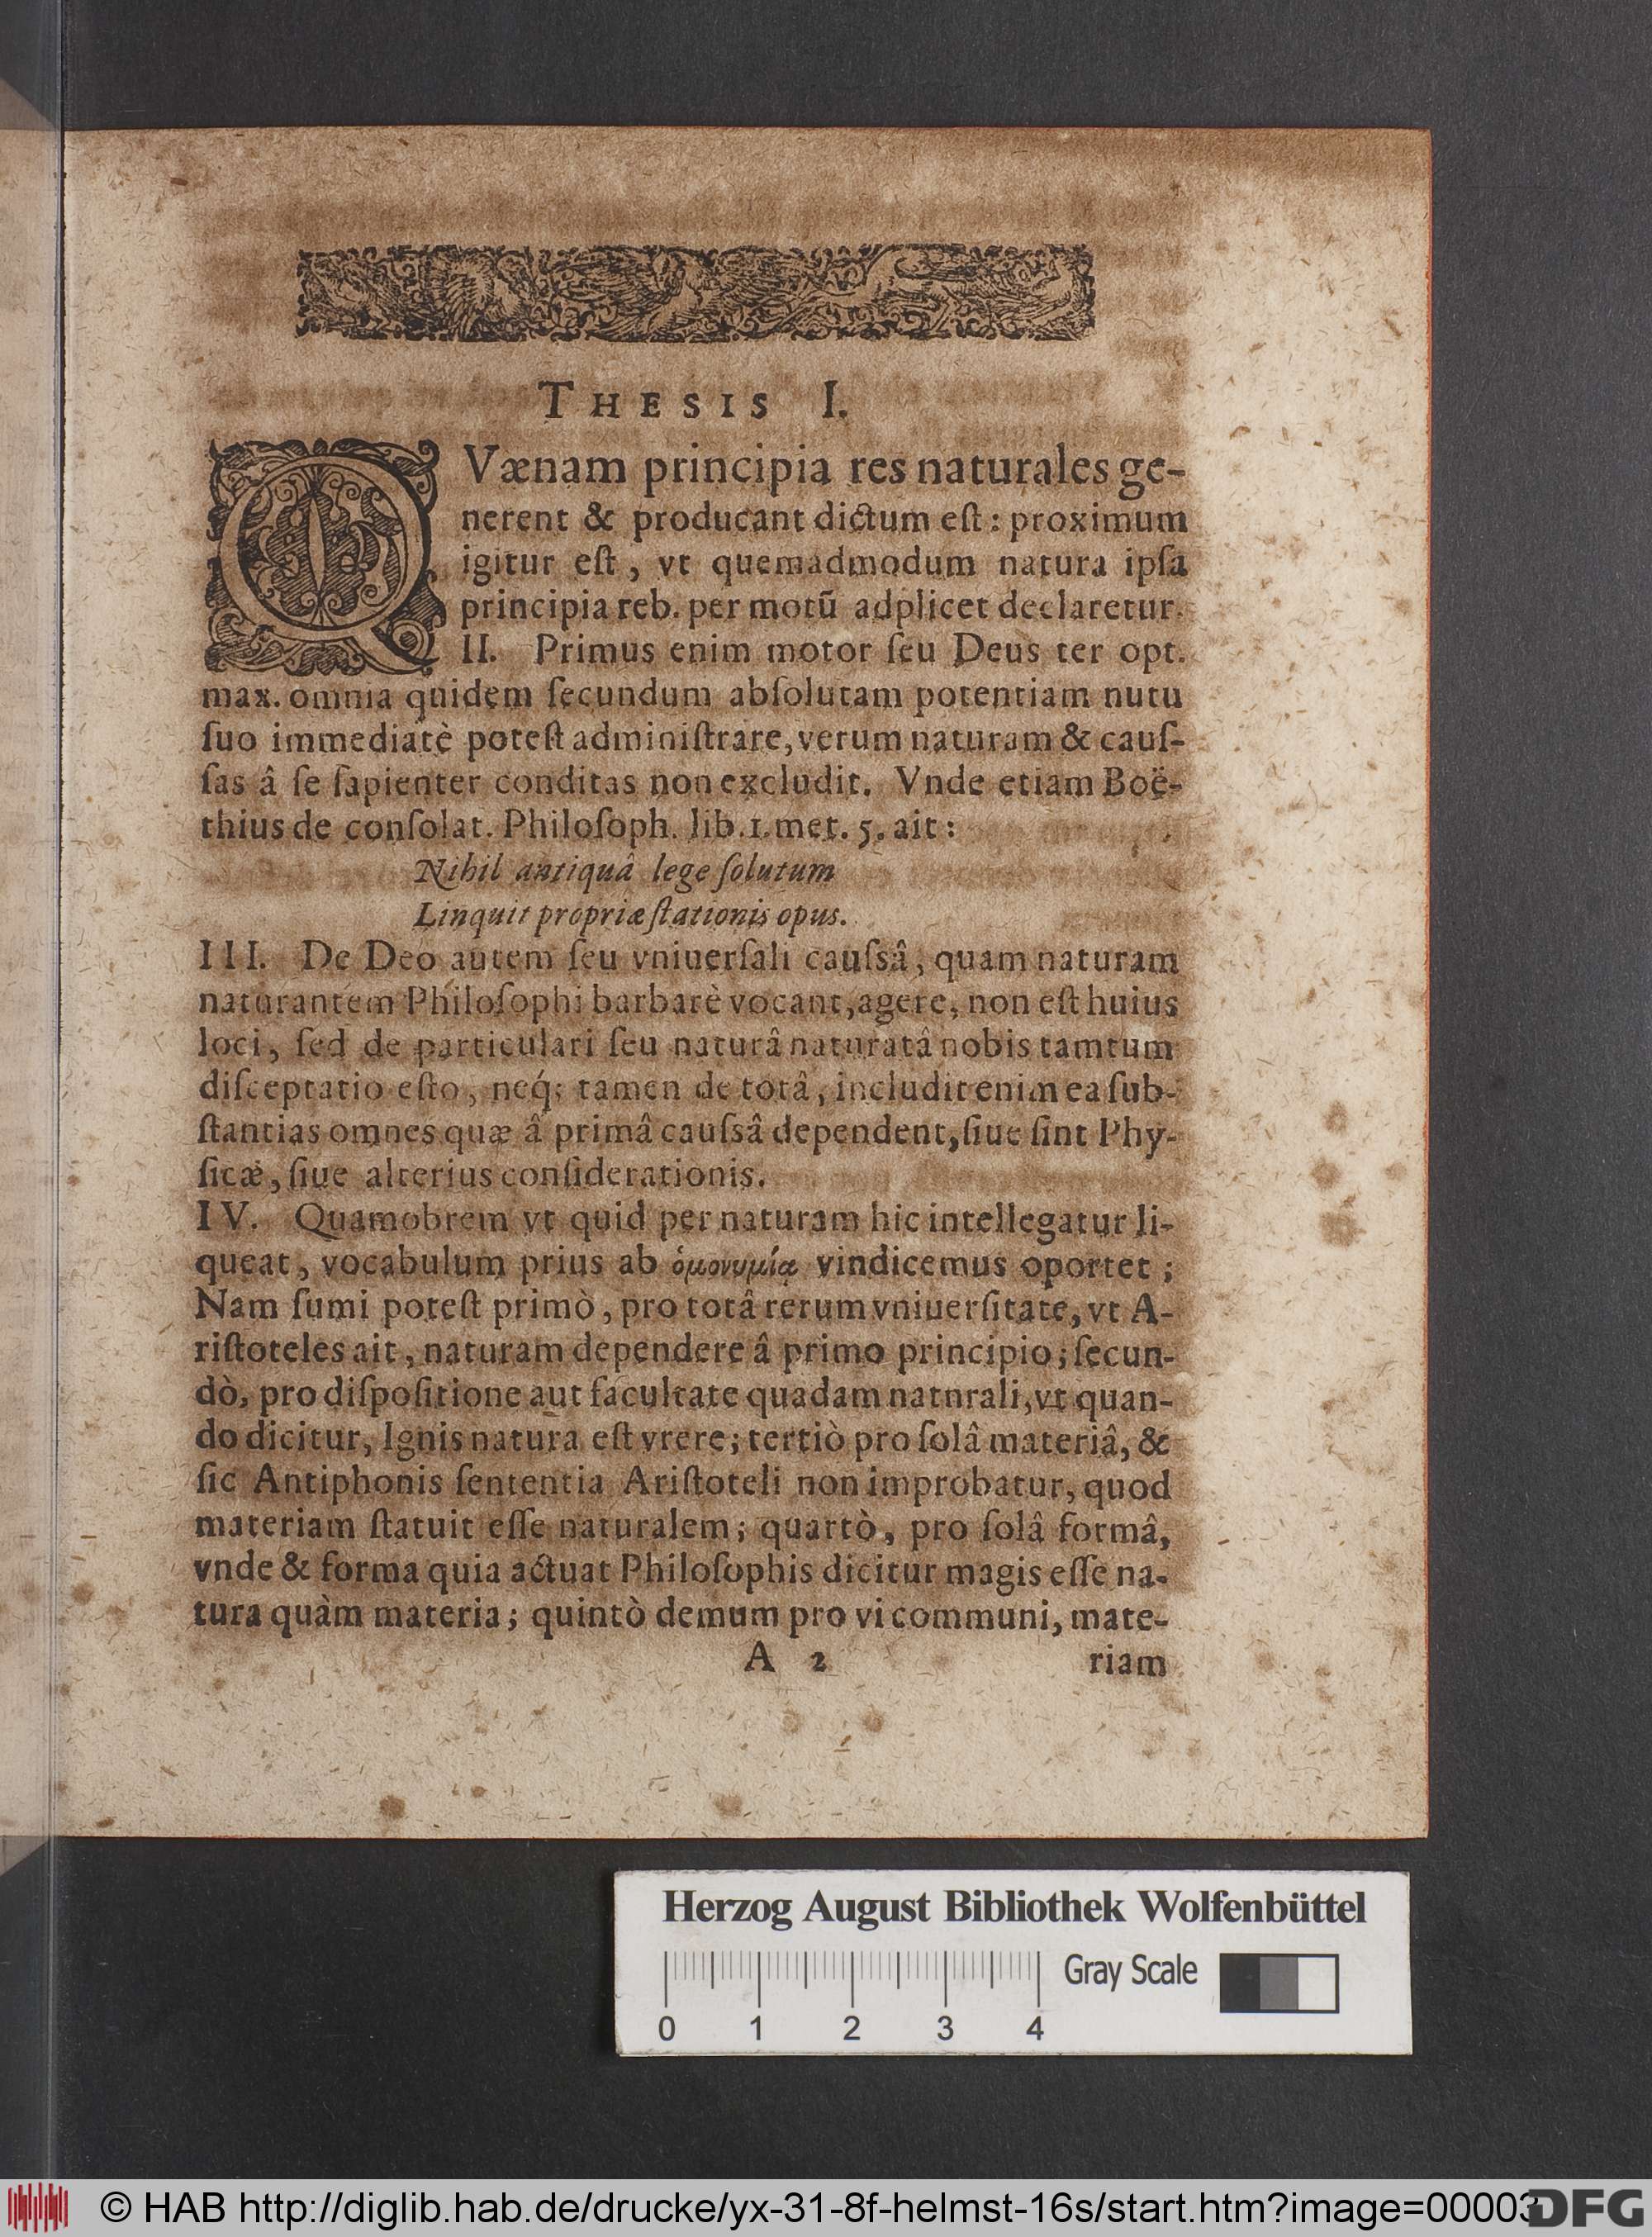 THESIS I.
QVænam principia res naturales ge-
nerent & producant dictum eſt: proximum
igitur eſt, vt quemadmodum natura ipſa
principia reb. per motū adplicet declaretur.
II. Primus enim motor ſeu Deus ter opt.
max. omnia quidem ſecundum abſolutam potentiam nutu
ſuo immediatè poteſt adminiſtrare, verum naturam & cauſ-
ſas â ſe ſapienter conditas non excludit. Vnde etiam Boë-
thius de conſolat. Philoſoph. lib. 1. met. 5. ait:
Nihil antiquâ lege ſolutum
Linquit propriæ ſtationis opus.
III. De Deo autem ſeu vniuerſali cauſsâ, quam naturam
naturantem Philoſophi barbarè vocant, agere, non eſt huius
loci, ſed de particulari ſeu naturâ naturatâ nobis tamtum
diſceptatio eſto, neq́; tamen de totâ, includit enim ea ſub-
ſtantias omnes quæ â primâ cauſsâ dependent, ſiue ſint Phy-
ſicæ, ſiue alterius conſiderationis.
IV. Quamobrem vt quid per naturam hic intellegatur li-
queat, vocabulum prius ab ὁμονυμίᾳ vindicemus oportet;
Nam ſumi poteſt primò, pro totâ rerum vniuerſitate, vt A-
riſtoteles ait, naturam dependere â primo principio; ſecun-
dò, pro diſpoſitione aut facultate quadam natnrali, vt quan-
do dicitur, Ignis natura eſt vrere; tertiò pro ſolâ materiâ, &
ſic Antiphonis ſententia Ariſtoteli non improbatur, quod
materiam ſtatuit eſſe naturalem; quartò, pro ſolâ formâ,
vnde & forma quia actuat Philoſophis dicitur magis eſſe na-
tura quàm materia; quintò demum pro vi communi, mate-
A 2 riam
Herzog August Bibliothek Wolfenbüttel
Gray Scale
0 1 2 3 4
© HAB http://diglib.hab.de/drucke/yx-31-8f-helmst-16s/start.htm?image=00003
DFG